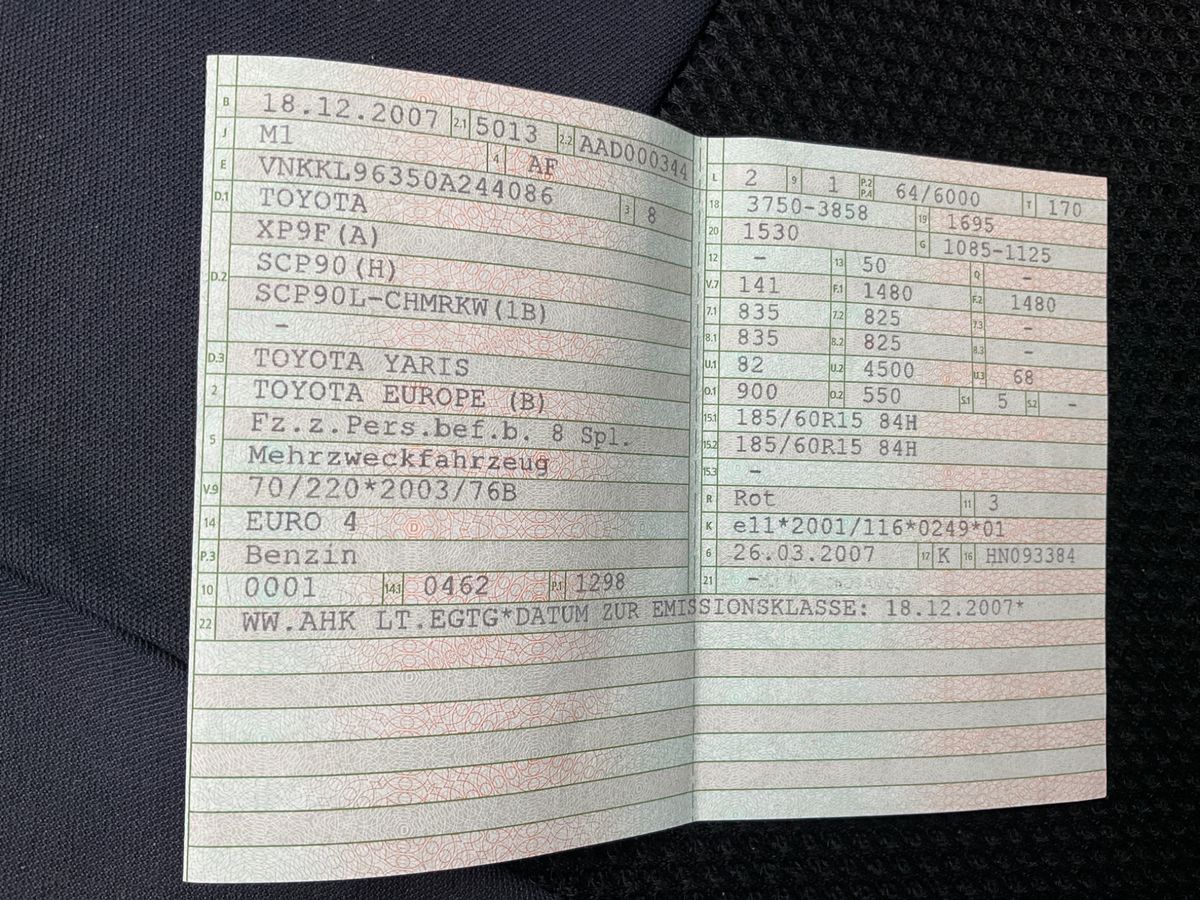 B 18.12.2007 2.1 5013 2.2 AAD000344
J M1 4 AF
E VNKKL96350A244086 3 8
D.1 TOYOTA
XP9F(A)
D.2 SCP90(H)
SCP90L-CHMRKW(1B)
-
D.3 TOYOTA YARIS
2 TOYOTA EUROPE (B)
5 Fz.z.Pers.bef.b. 8 Spl.
Mehrzweckfahrzeug
V.9 70/220*2003/76B
14 EURO 4
P.3 Benzin
10 0001 14.1 0462 P.1 1298
22 WW.AHK LT.EGTG*DATUM ZUR EMISSIONSKLASSE: 18.12.2007*
L 2 9 1 P.2 P.4 64/6000 T 170
18 3750-3858 19 1695
20 1530 G 1085-1125
12 - 13 50 Q -
V.7 141 F.1 1480 F.2 1480
7.1 835 7.2 825 7.3 -
8.1 835 8.2 825 8.3 -
U.1 82 U.2 4500 U.3 68
O.1 900 O.2 550 S.1 5 S.2 -
15.1 185/60R15 84H
15.2 185/60R15 84H
15.3 -
R Rot 11 3
K e11*2001/116*0249*01
6 26.03.2007 17 K 16 HN093384
21 -